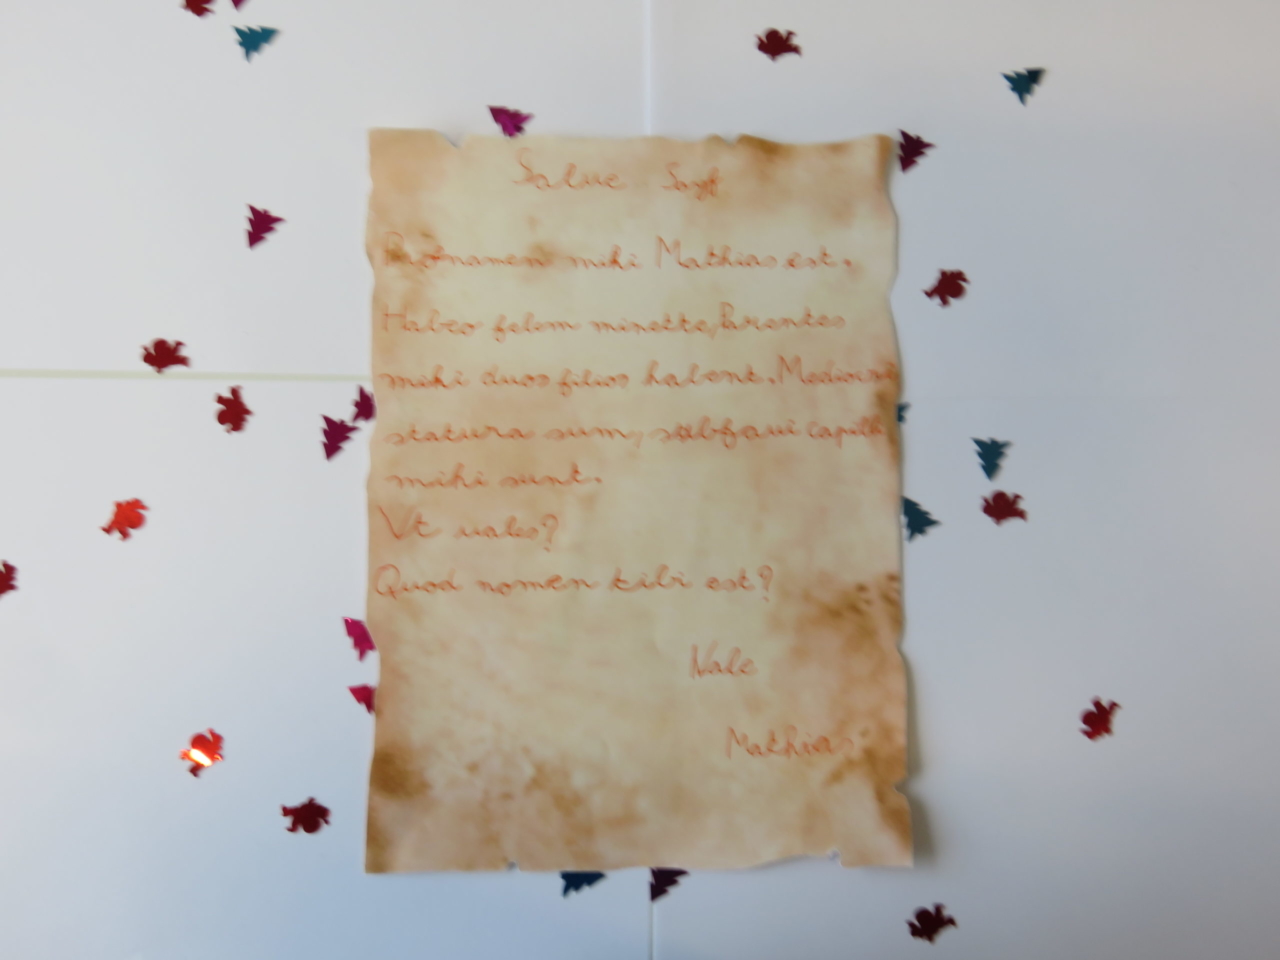 Salve
Praenomen mihi Mathias est.
Habeo felem minette, Parentes
mihi duos filios habent. Mediocri
statura sum, subflaui capilli
mihi sunt.
Vt uales?
Quod nomen tibi est?
Vale
Mathias